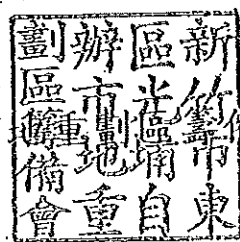 新竹市東
區光埔自
辦市地重
劃區籌備會